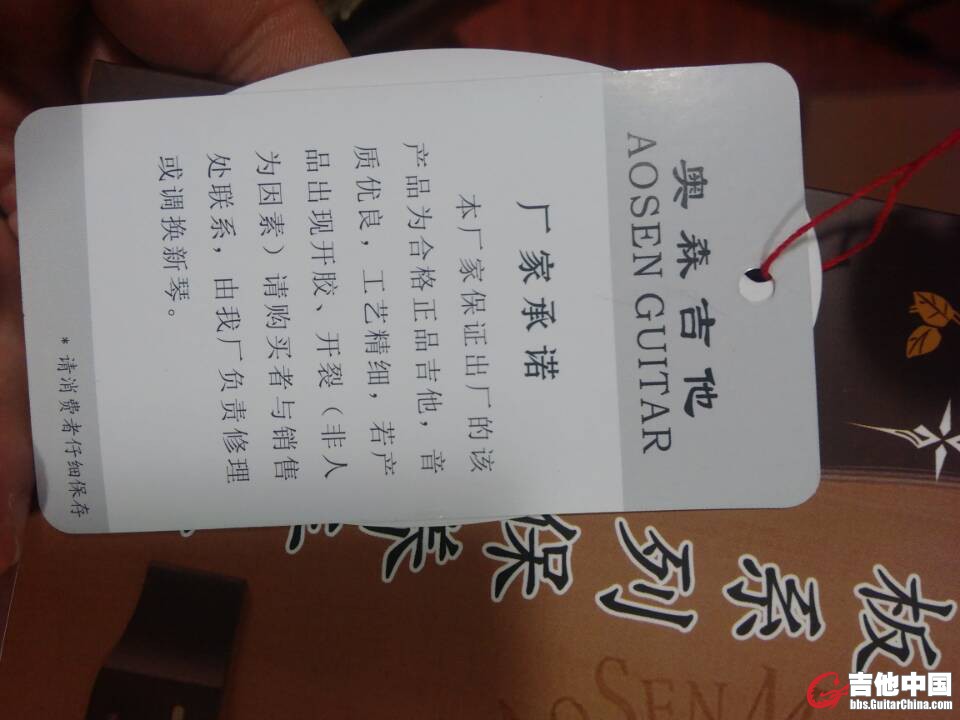 奥森吉他
AOSEN GUITAR
厂家承诺
本厂家保证出厂的该
产品为合格正品吉他，音
质优良，工艺精细，若产
品出现开胶、开裂（非人
为因素）请购买者与销售
处联系，由我厂负责修理
或调换新琴。
*请消费者仔细保存
板
系
列
保
吉他中国
bbs.GuitarChina.com